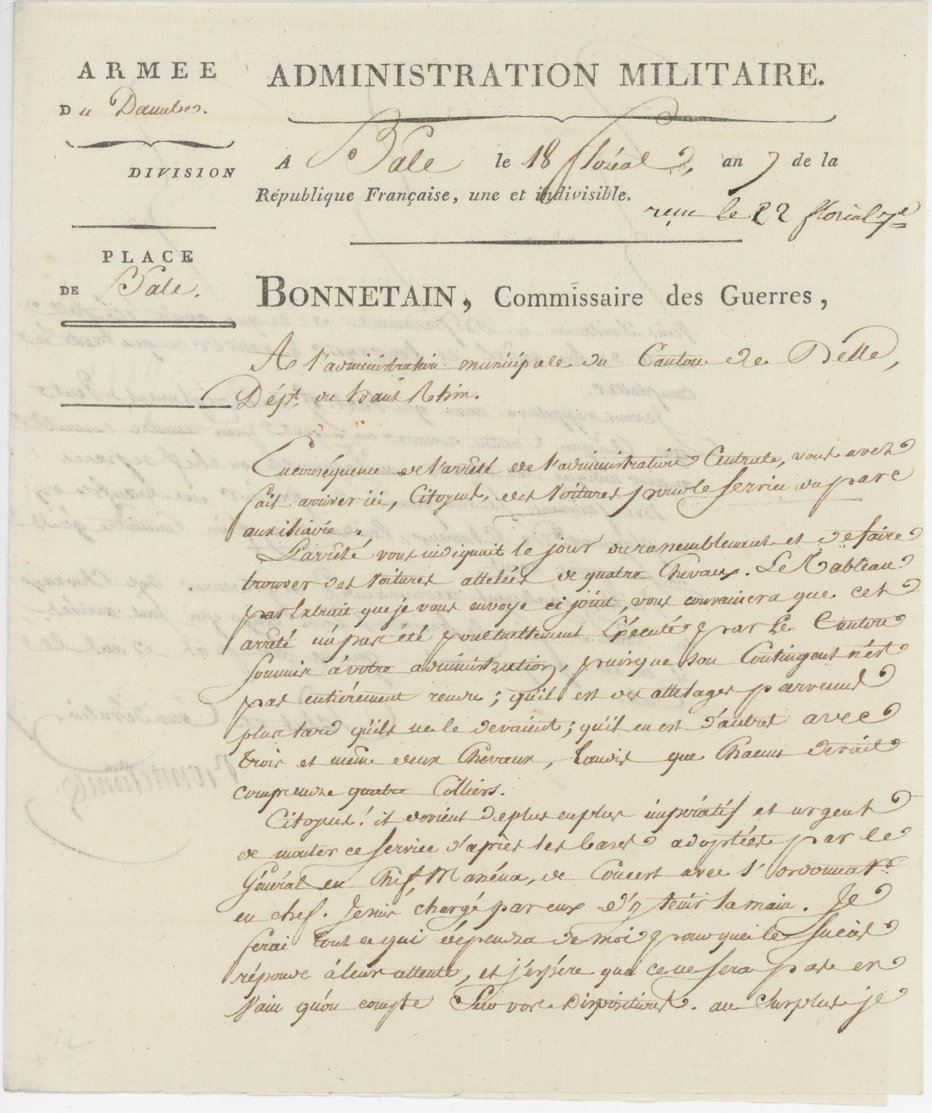 ARMEE
Du Danube.
DIVISION
PLACE
DE Bale.
ADMINISTRATION MILITAIRE.
A Bale le 18 floréal, an 7 de la
République Française, une et indivisible.
reçu le 22 floréal 7e
BONNETAIN, Commissaire des Guerres,
A l'administration municipale du Canton de Delle,
Dépt. du haut Rhin.
En conséquence de l'arrêté de l'administration Centrale, vous avez
fait arriver ici, Citoyens, des Voitures pour le Service du parc
auxiliaire.
L'arrêté vous indiquait le jour du rassemblement et de faire
trouver des Voitures attelées de quatre Chevaux. Le Tableau
par Extrait que je vous envoye ci joint, vous convaincra que cet
arrêté n'a pas été ponctuellement Exécuté par le Canton
soumis à votre administration, puisque son Contingent n'est
pas entièrement rendu; qu'il est des attelages parvenus
plus tard qu'ils ne le devaient; qu'il en est d'autres avec
trois et même deux Chevaux, tandis que Chacun devait
comprendre quatre Colliers.
Citoyens! il devient de plus en plus impératif et urgent
de monter ce service d'après les bases adoptées par le
Général en Chef Masséna, de Concert avec l'ordonnatr.
en chef. Je suis chargé par eux d'y tenir la main. Je
ferai tout ce qui dépendra de moi pour que le Succès
réponde à leur attente, et j'espère que ce ne sera pas en
Vain qu'on compte Sur vos dispositions. au Surplus je